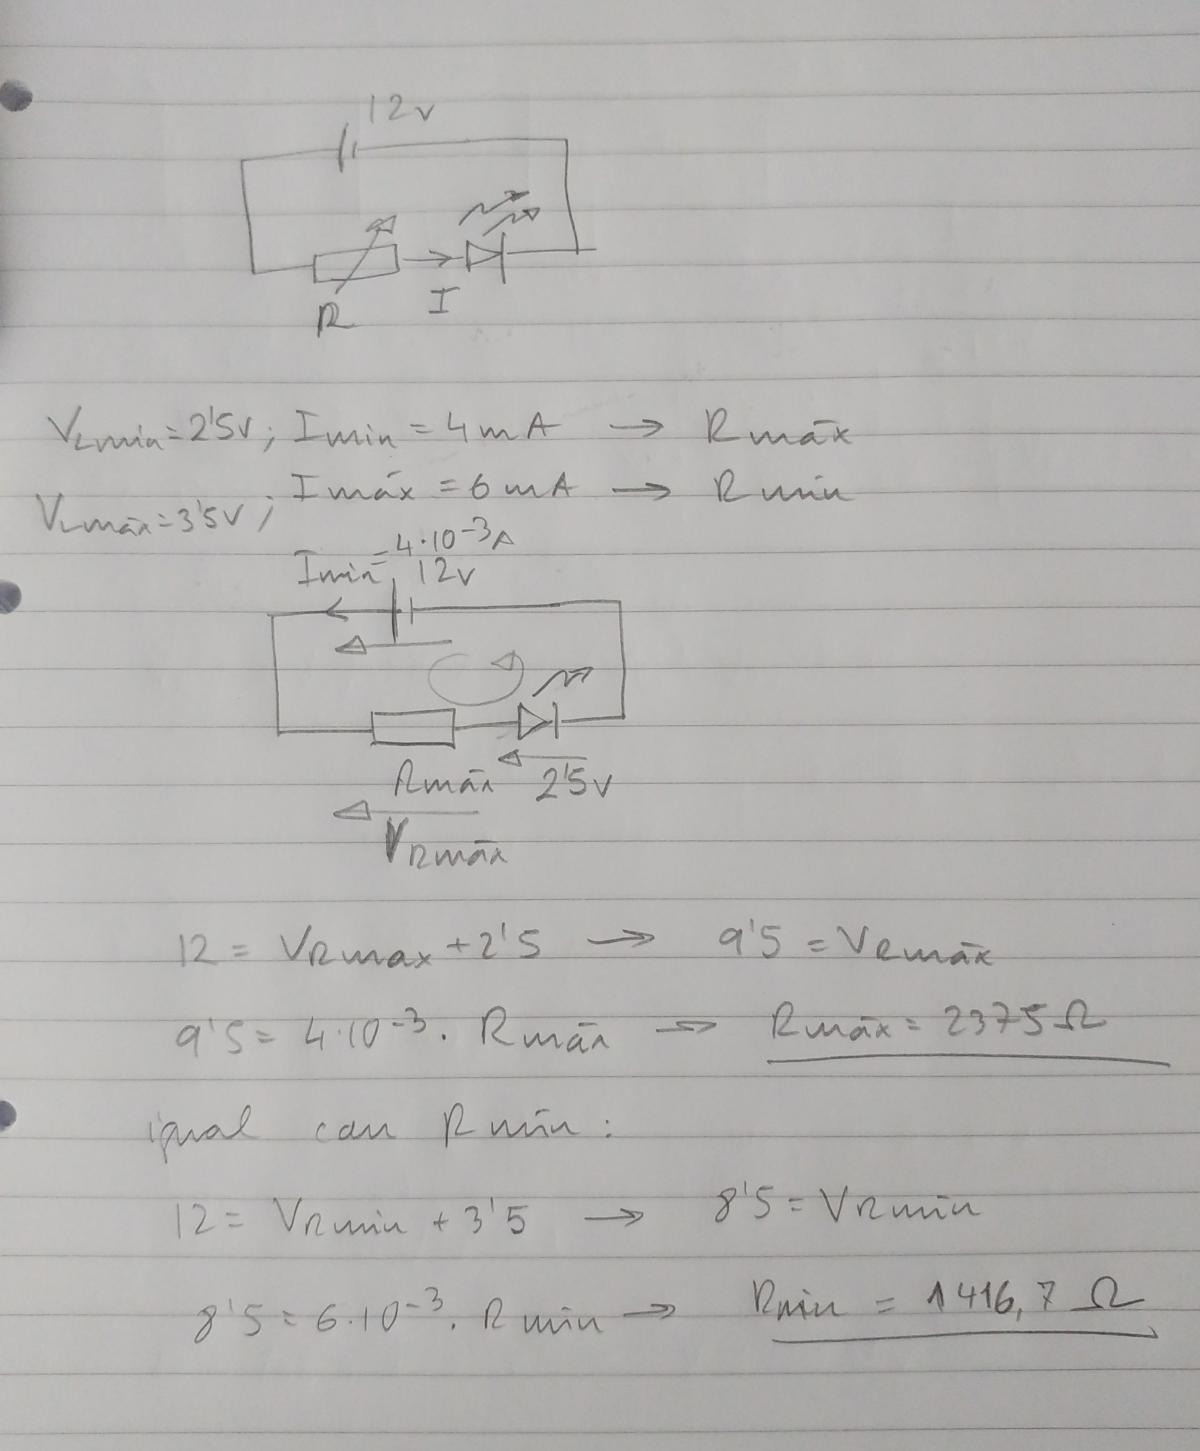 12v
R I
VLmin=2'5V; Imin = 4mA → Rmáx
VLmáx=3'5V; Imáx = 6mA → Rmin
Imin=4·10⁻³A
12v
Rmáx 2'5V
VRmáx
12 = VRmax + 2'5 → 9'5 = VRmáx
9'5 = 4·10⁻³ · Rmáx → Rmáx = 2375Ω
igual con Rmin:
12 = VRmin + 3'5 → 8'5 = VRmin
8'5 = 6·10⁻³ · Rmin → Rmin = 1416,7 Ω